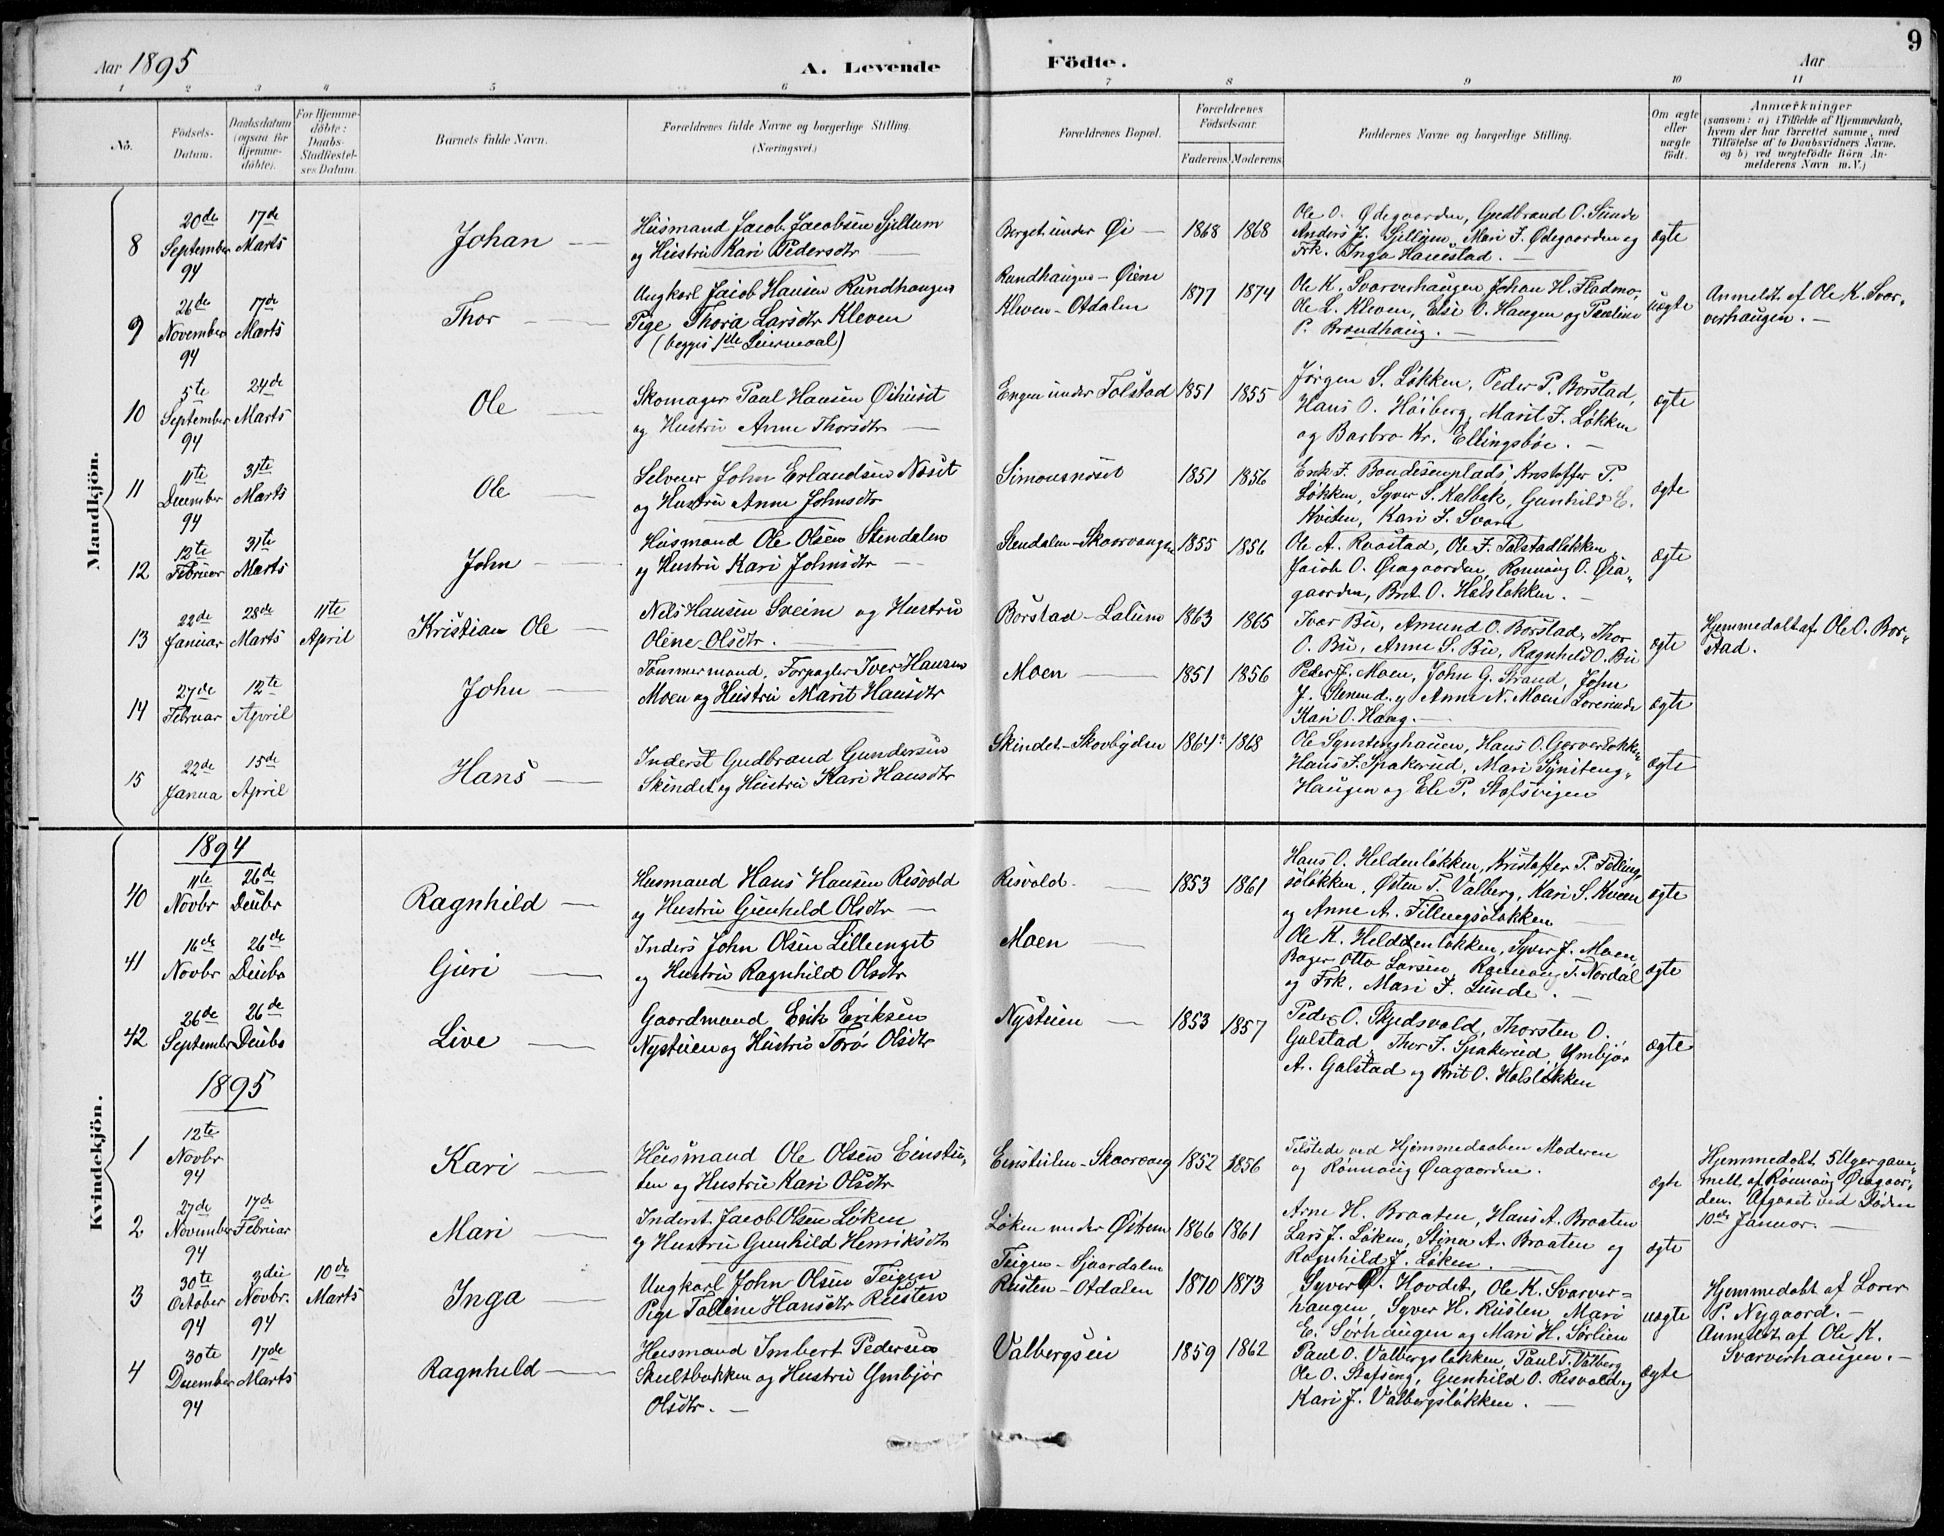 Aar 1895
A. Levende
Födte.
Aar
9
1 2 3 4 5 6 7 8 9 10 11
No.
Födsels-Datum.
Daabsdatum (ogsaa for Hjemmedöbte).
For Hjemmedöbte: Daabs-Stadfæstelses Datum
Barnets fulde Navn.
Forældrenes fulde Navne og borgerlige Stilling.
(Næringsvei.)
Forældrenes Bopæl.
Forældrenes Födselsaar.
Faderens Moderens
Faddernes Navne og borgerlige Stilling.
Om ægte eller uægte födt.
Anmærkninger
(saasom: a) i Tilfælde af Hjemmedaab, hvem der har forrettet samme, med Tilföielse af to Daabsvidners Navne. og b) ved uægtefödte Börn Anmelderens Navn m.V.)
Mandkjön.
8 20de September 94
17de Marts
Johan
Husmand Jacob Jacobsen Sjellum
og Hustru Kari Pedersdtr
Berget under Øi
1868 1868
Ole O. Ødegaarden, Gudbrand O. Sunde
Anders J. Sjellum, Mari J. Ødegaarden og
Frk. Inga Hauestad.
ægte
9 26de November 94
17de Marts
Thor
Ungkarl Jacob Hansen Rundhaugen
Pige Thora Larsdtr Kleven
(begges 1ste Leiermaal)
Rundhaugen - Øiene
Kleven - Otdalen
1877 1874
Ole K. Svarverhaugen Johan H. Fladmo,
Ole L. Kleven, Else O. Haugen og Pauline
P. Brændhaug.
uægte
Anmeldt af Ole K. Svarverhaugen.
10 5te September 94
24de Marts
Ole
Skomager Paul Hansen Øihuset
og Hustru Anne Thorsdtr
Engen under Tolstad
1851 1855
Jørgen S. Løkken, Peder P. Borstad,
Hans O. Høiberg, Marit J. Løkken
og Barbro Kr. Ellingsbøe.
ægte
11 11te December 94
31te Marts
Ole
Selveier John Erlandsen Næset
og Hustru Anne Johnsdtr
Simonsnæset
1851 1856
Erik J. Bondesenplads, Kristoffer P.
Løkken, Syver S. Kalbak, Gunhild E.
Kviten, Kari J. Svare
ægte
12 12te Februar
31te Marts
John
Husmand Ole Olsen Stendalen
og Hustru Kari Johnsdtr
Stendalen - Skaarvangen
1855 1856
Ole A. Ruostad, Ole J. Tolstadløkken,
Jacob O. Øiagaarden, Rønnaug O. Øiagaarden, Brit O. Holsløkken.
ægte
13 22de Januar
28de Marts
11te April
Kristian Ole
Nels Hansen Sveine og Hustru
Oline Olsdtr.
Borstad - Lalum
1863 1865
Ivar Bu, Amund O. Borstad, Thor
O. Bu, Anne S. Bu, Ragnhild O. Bu
ægte
Hjemmedøbt af Ole O. Borstad.
14 27de Februar
12te April
John
Tømmermand, Forpagter Iver Hansen
Moen og Hustru Marit Hansdtr
Moen
1851 1856
Peder J. Moen, John G. Strand, John
J. Stenend. og Anne N. Moen, Lærerinde
Kari O. Haug.
ægte
15 22de Janua
15de April
Hans
Inderst Gudbrand Gundersen
Skindet og Hustru Kari Hansdtr
Skindet - Skovbygden
1864 1868
Ole Synstenghauen, Hans O. Garverløkken,
Hans J. Spakerud, Mari Synsteng-
Haugen og Ele P. Stafsvigen
ægte
Kvindekjön.
1894
40 11te Novbr
26de Decbr
Ragnhild
Husmand Hans Hansen Risvold
og Hustru Gunhild Olsdtr
Risvold.
1853 1861
Hans O. Heldenløkken, Kristoffer P. Fillingsøløkken, Østen T. Valberg, Kari S. Kveen
og Anne A. Fillingsøløkken
ægte
41 16de Novbr
26de Decbr
Guri
Inders John Olsen Lillenget
og Hustru Ragnhild Olsdtr
Moen
Ole K. Heldenløkken, Syver J. Moen,
Bager Otto Larsen, Rønnaug T. Nordal
og Frk. Mari J. Sunde.
ægte
42 26de September
26de Decbr
Live
Gaardmand Erik Eriksen
Nystuen og Hustru Toro Olsdtr
Nystuen
1853 1857
Peder O. Skjedsvold, Thorsten O.
Galstad, Thor J. Spakerud, Ymbjør
A. Galstad og Brit O. Holsløkken
ægte
1895
1 12te Novbr 94
Kari
Husmand Ole Olsen Einstulen og Hustru Kari Olsdtr
Einstulen - Skaarvang
1852 1856
Tilstede ved Hjemmedaaben Moderen
og Rønnaug Øiagaarden.
ægte
Hjemmedøbt 5 Uger gammelt af Rønnaug Øiagaarden. Afgaaet ved Døden
10de Januar.
2 27de November 94
17de Februar
Mari
Inderst Jacob Olsen Løken
og Hustru Gunhild Henriksdtr
Løken under Østrem
1866 1861
Arne H. Braaten, Hans A. Braaten
Lars J. Løken, Stina A. Braaten og
Ragnhild J. Løken.
ægte
3 30te October 94
3die Novbr. 94
10de Marts
Inga
Ungkarl John Olsen Teigen
Pige Talline Hansdtr Rusten
Teigen - Sjaardalen
Rusten - Otdalen
1870 1873
Syver O. Hovdet, Ole K. Svarverhaugen, Syver H. Rusten, Mari
E. Sørhaugen og Mari H. Sørlien
uægte
Hjemmedøbt af Lærer
P. Nygaard.
Anmeldt af Ole K.
Svarverhaugen.
4 30te December 94
17de Marts
Ragnhild
Husmand Imbert Pedersen
Skultbakken og Hustru Ymbjør
Olsdtr.
Valbergseie
1859 1862
Paul O. Valbergsløkken, Paul T. Valberg
Ole O. Stafseng, Gunhild O. Risvold og
Kari J. Valbergsløkken.
ægte